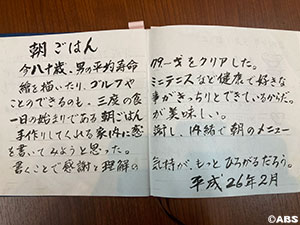 朝ごはん
今八十歳、男の平均寿命
絵を描いたり、ゴルフや
ことのできるのも、三度の食
一日の始まりである朝ごはん
手作りしてくれる家内に感
を書いてみようと思った。
書くことで感謝と理解の
79一才をクリアした。
ミニテニスなど健康で好きな
事がきっちりとできているからだ。
が美味しい。
謝し、内緒で朝のメニュー
気持が、もっとひろがるだろう。
平成26年2月
©ABS